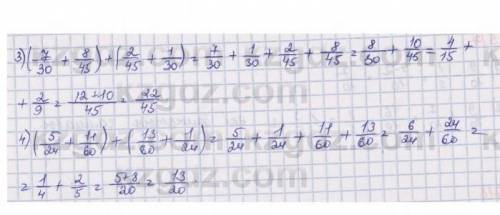 3) (7/30 + 8/45) + (2/45 + 1/30) = 7/30 + 1/30 + 2/45 + 8/45 = 8/30 + 10/45 = 4/15 +
+ 2/9 = 12+10/45 = 22/45
4) (5/24 + 11/60) + (13/60 + 1/24) = 5/24 + 1/24 + 11/60 + 13/60 = 6/24 + 24/60 =
= 1/4 + 2/5 = 5+8/20 = 13/20